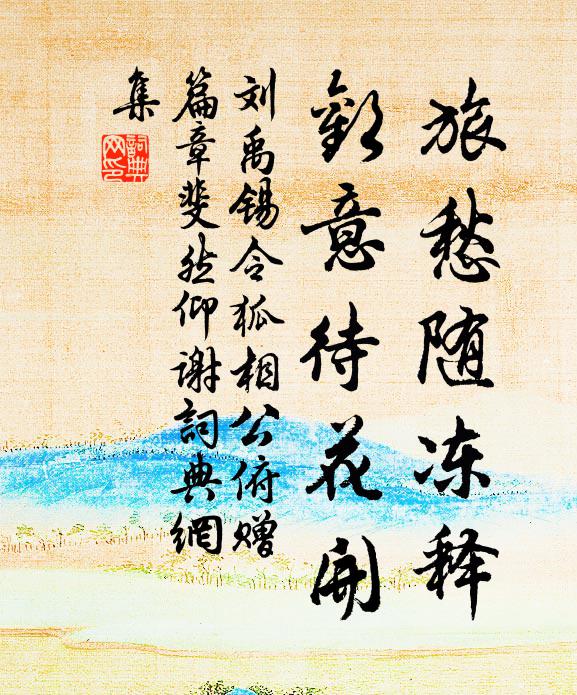 旅愁随冻释
歡意待花開
刘禹锡令狐相公俯赠
篇章斐然仰谢詞典網
集
詞典
网印